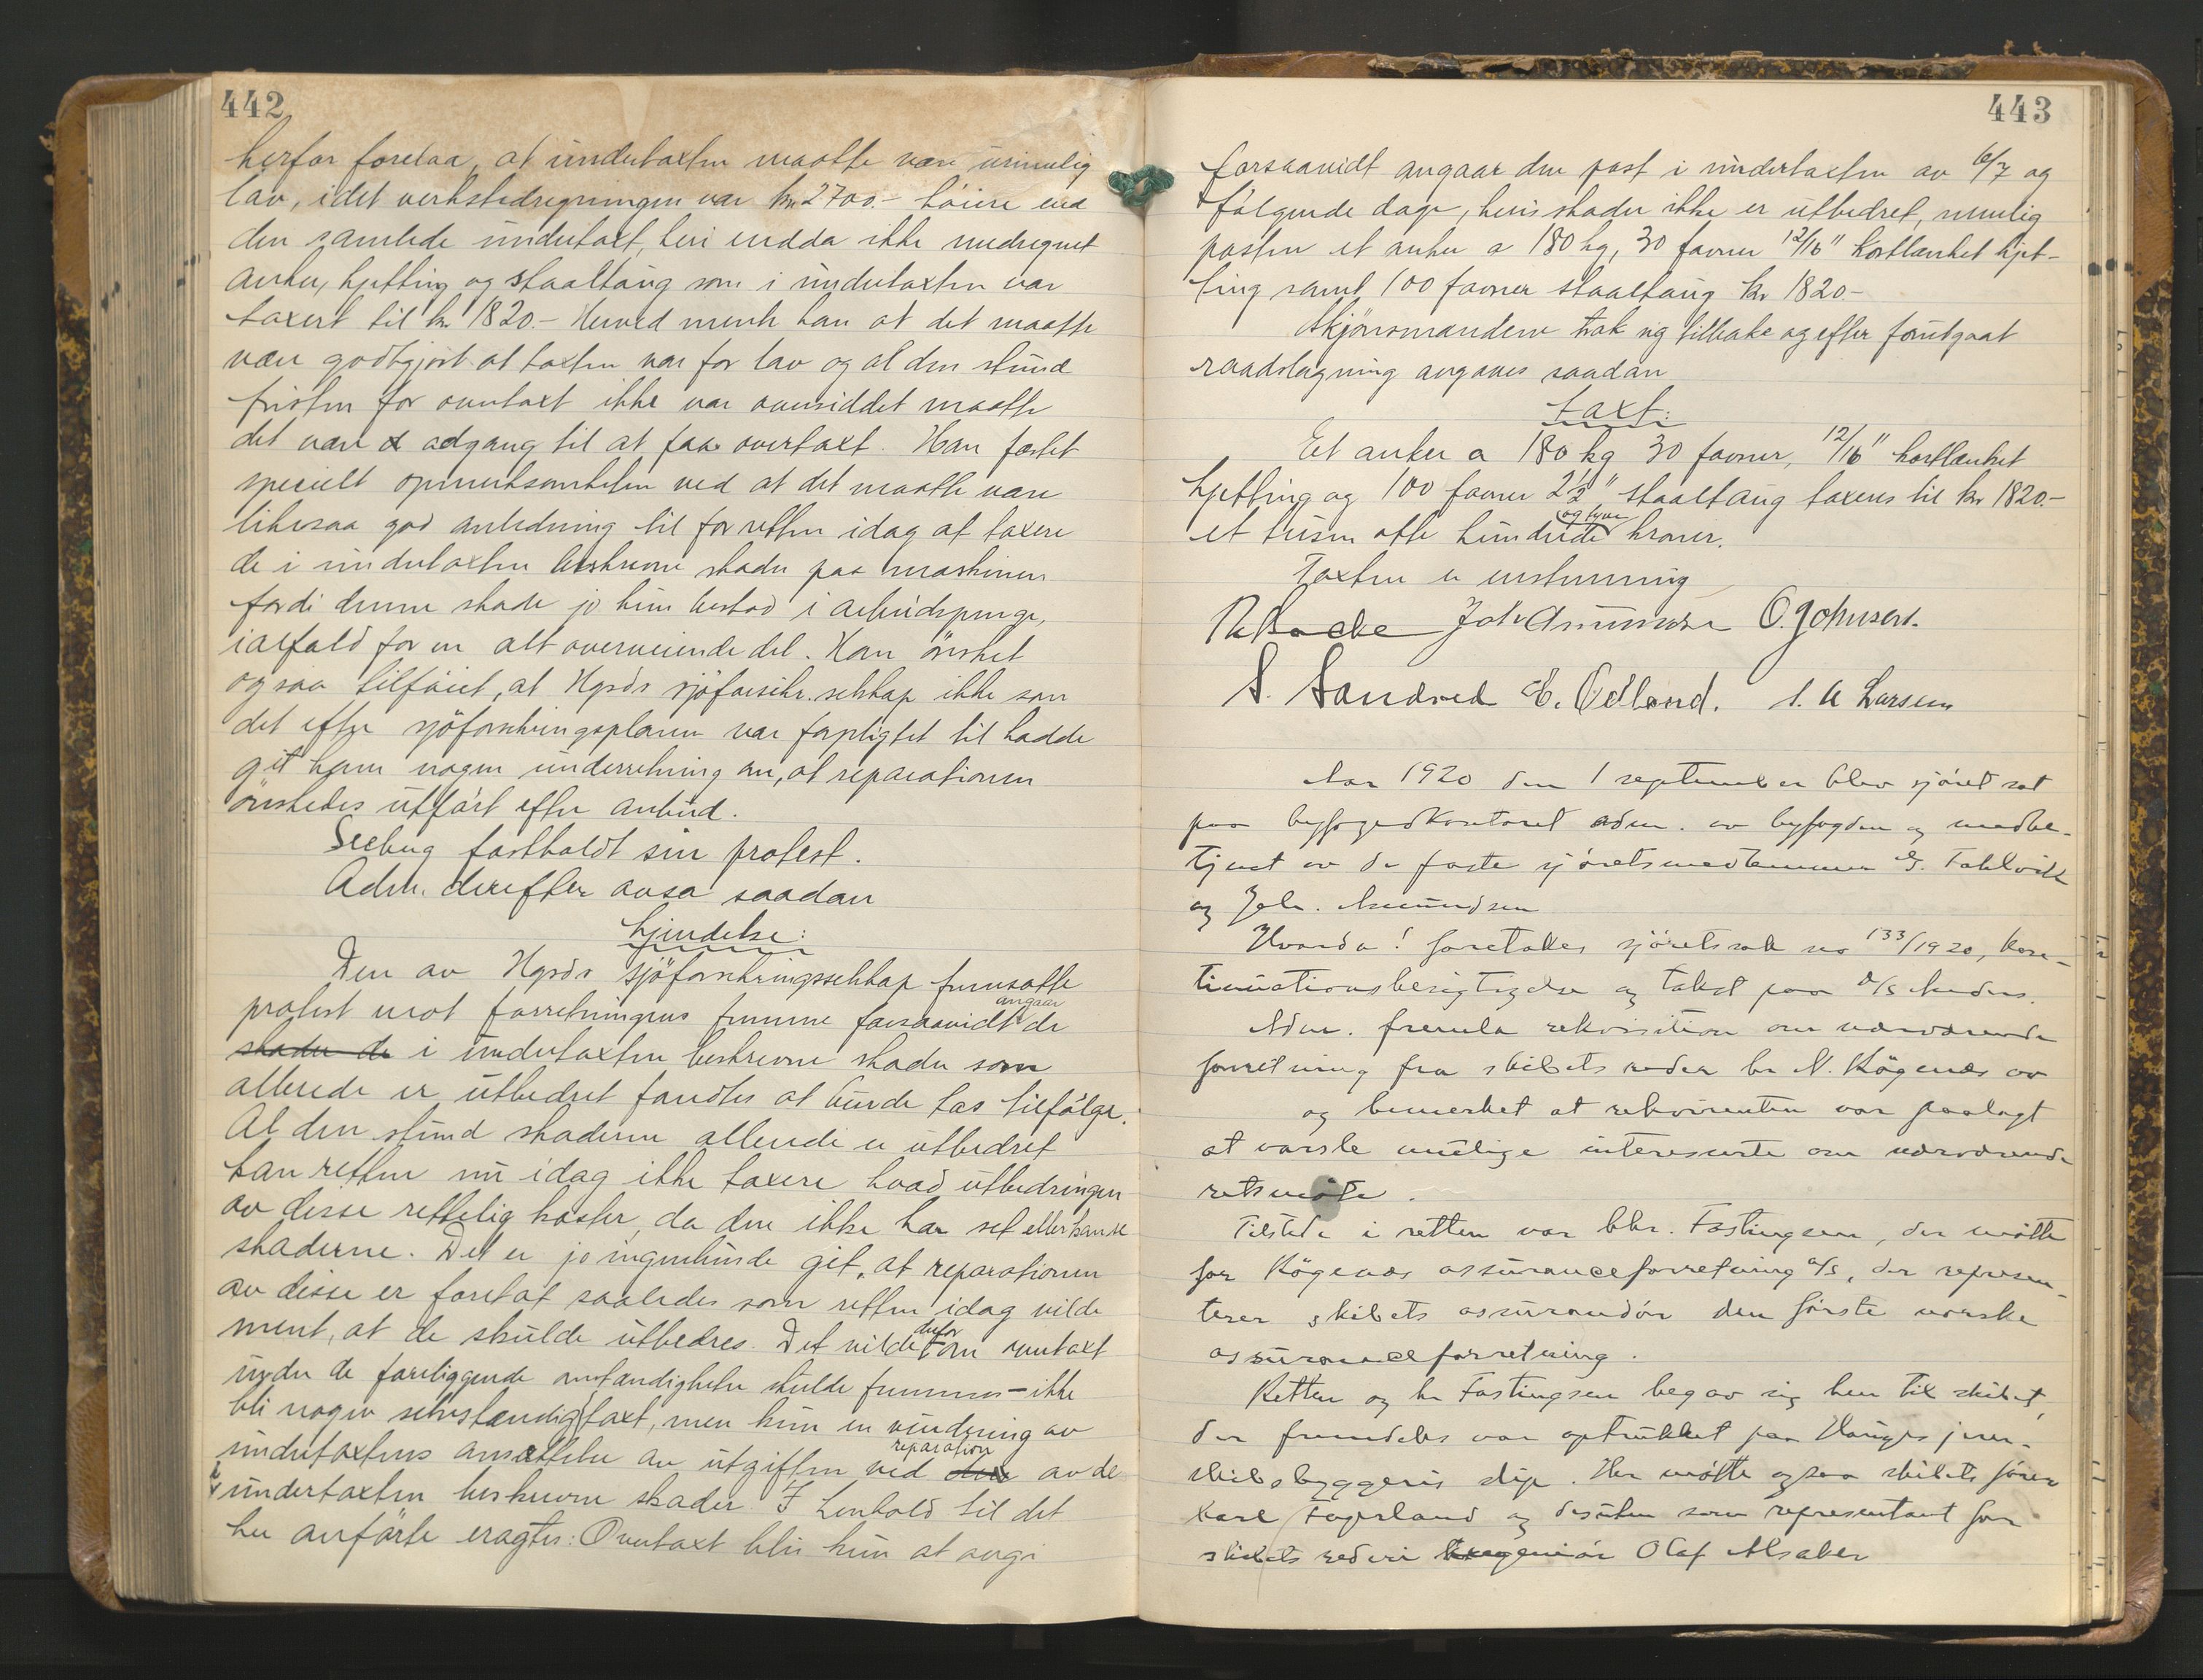 442
herfor forelaa, at undertaxten maatte være urimelig
lav, idet verkstedregningen var kr 2700.- høiere end
den samlede undertaxt, heri endda ikke medregnet
anker, kjetting og staaltaug som i undertaxten var
taxert til kr 1820.- Herved mente han at det maatte
være godtgjort at taxten var for lav og al den stund
fristen for overtaxt ikke var oversiddet maatte
det være adgang til at faa overtaxt. Han fæstet
specielt opmerksomheten ved at det maatte være
likesaa god anledning til for retten idag at taxere
de i undertaxten beskrevne skader paa maskinen
fordi denne skade jo kun bestod i arbeidspenge,
ialfald for en alt overveiende del. Han ønsket
ogsaa tilføiet, at Hgsds sjöforsikr. selskap ikke som
det efter sjöforsikringsplanen var forpligtet til hadde
git ham nogen underretning om, at reparationen
ønskedes utført efter anbud.
Seeberg fastholdt sin protest.
Adm. derefter avsa saadan
kjendelse:
Den av Hgsds sjöforsikringsselskap fremsatte
protest mot forretningens fremme forsaavidt angaar de
skader de i undertaxten beskrevne skader som
allerede er utbedret fandtes at burde tas tilfølge.
Al den stund skaderne allerede er utbedret
kan retten nu idag ikke taxere hvad utbedringen
av disse rettelig koster, da den ikke har set eller kan se
skaderne. Det er jo ingenlunde git, at reparationen
av disse er foretat saaledes som retten idag vilde
ment, at de skulde utbedres. Det vilde derfor om overtaxt
under de foreliggende omstændigheter skulde fremmes - ikke
bli nogen selvstændig taxt, men kun en vurdering av
undertaxtens ansættelse av utgiften ved reparation av de
i undertaxten beskrevne skader. I henhold til det
her anførte eragtes: Overtaxt blir kun at avgi
443
forsaavidt angaar den post i undertaxten av 6/7 og
følgende dage, hvis skader ikke er utbedret, nemlig
posten et anker a 180 kg, 30 favner 12/16" kortlænket kjet-
ting samt 100 favner staaltaug kr 1820.-
Skjönsmændene trak sig tilbake og efter forutgaat
raadslagning avgaves saadan
taxt:
Et anker a 180 kg 30 favner, 12/16" kortlænket
kjetting og 100 favner 2½" staaltaug taxeres til kr 1820.-
et tusen otte hundrede og tyve kroner.
Taxten er enstemmig
Joh Asmundsen O. Johnsen.
S. Sandved E. Ødland. S. A Larsen
Aar 1920 den 1 september blev sjöret sat
paa byfogedkontoret adm. av byfogden og medbe-
tjent av de faste sjöretsmedlemmer G. Fahlvik
og Joh. Asmundsen
Hvorda! foretokes sjöretssak no 133/1920, kon-
tinuationsbesigtigelse og takst paa D/S Andøs.
Adm. fremla rekvisition om nærværende
forretning fra skibets reder hr N. Røgenæs av
og bemerket at rekvirenten var paalagt
at varsle mulige interesserte om nærværende
retsmøte.
Tilstede i retten var hr. Fastingsen, der møtte
for Røgenæs assuranceforretning a/s, der represen-
terer skibets assurandør den første norske
assuranceforretning.
Retten og hr Fastingsen begav sig hen til skibet,
der fremdeles var optrukket paa Hauges jern-
skibsbyggeris slip. Her møtte ogsaa skibets fører
Karl Fagerland og desuten som representant for
skibets rederi Olaf Alsaker